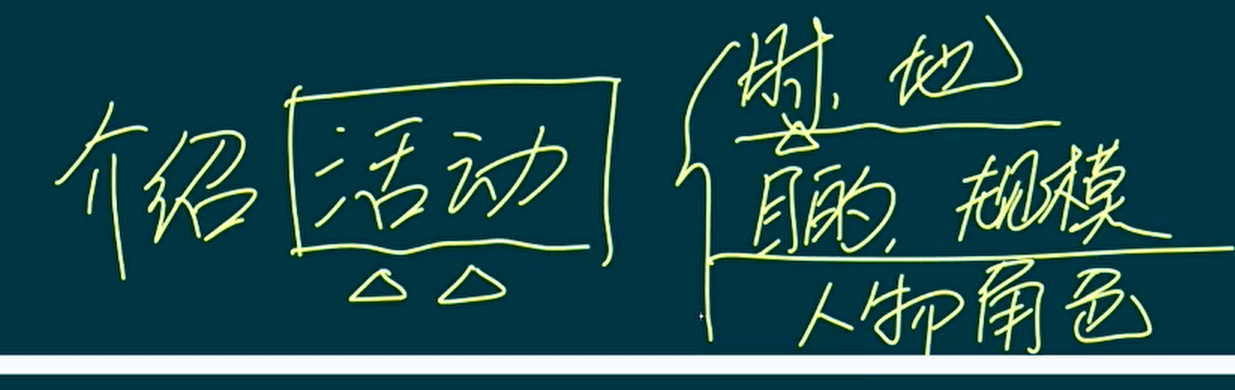 介绍活动
时、地
目的、规模
人物角色